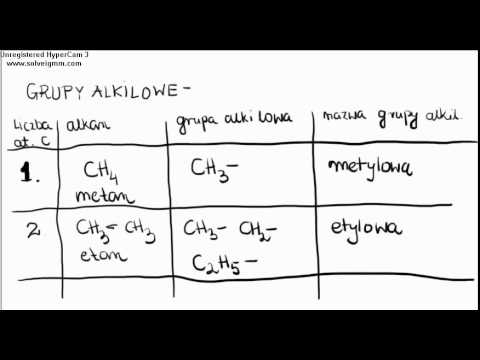 Unregistered HyperCam 3
www.solveigmm.com
GRUPY ALKILOWE -
liczba at. C | alkan | grupa alkilowa | nazwa grupy alkil.
1. | CH₄ metan | CH₃- | metylowa
2 | CH₃- CH₃ etan | CH₃- CH₂- C₂H₅- | etylowa